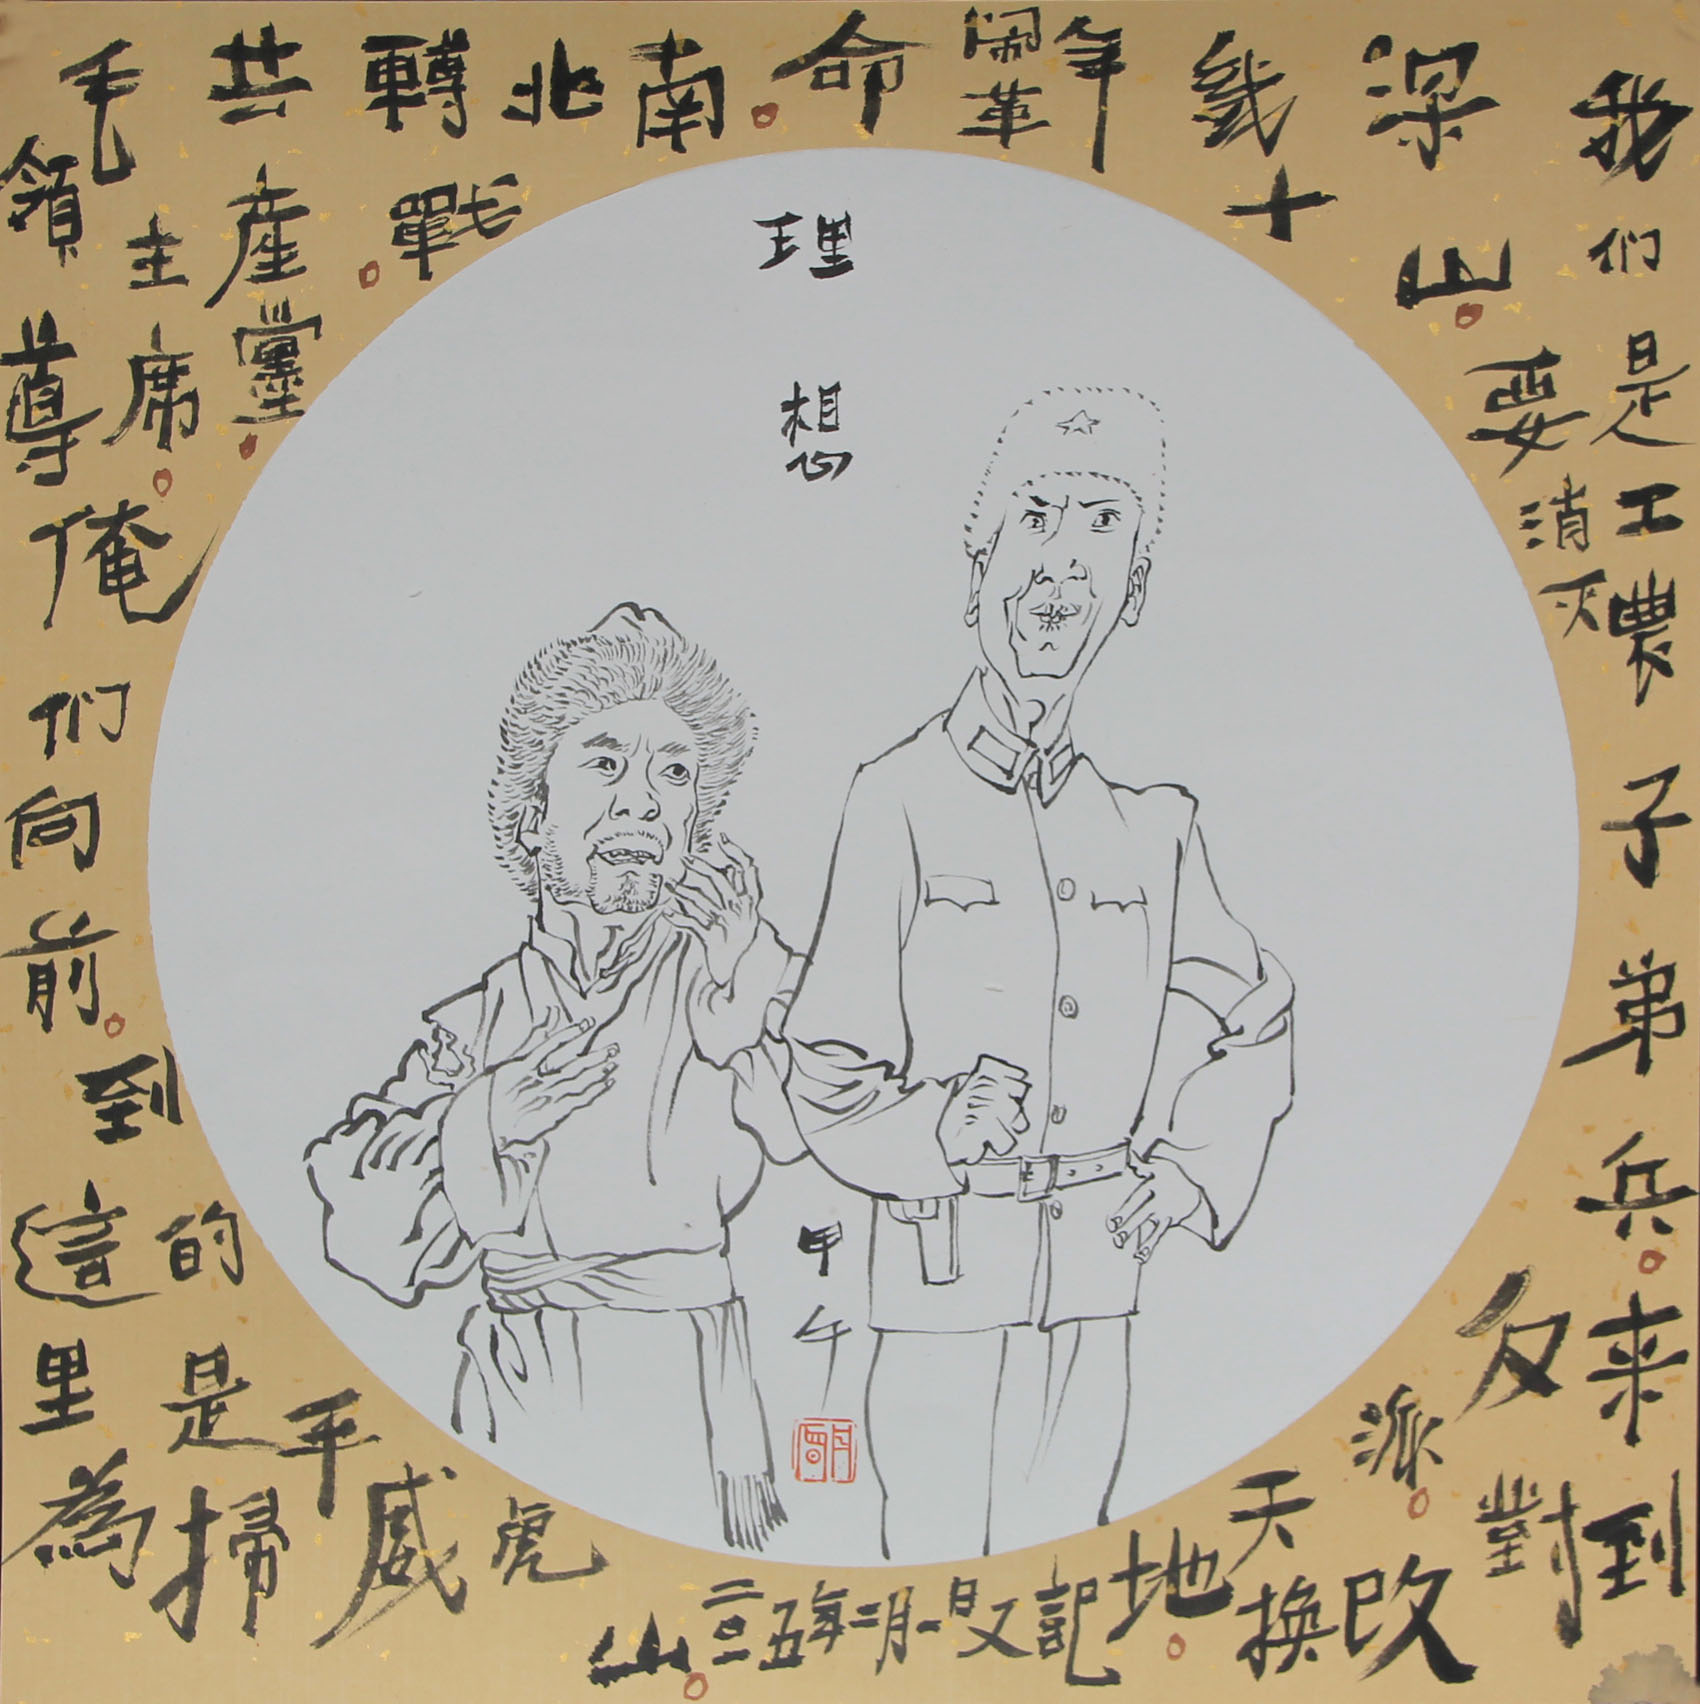 我们是工農子弟兵。来到
深山。要消灭
反對派。改天換地。
幾十年闹革命。南北轉戰。
共產黨。毛主席。
領導俺们向前。到這里
為的是掃平威虎山。
二〇一五年二月一日又記
理想
甲午